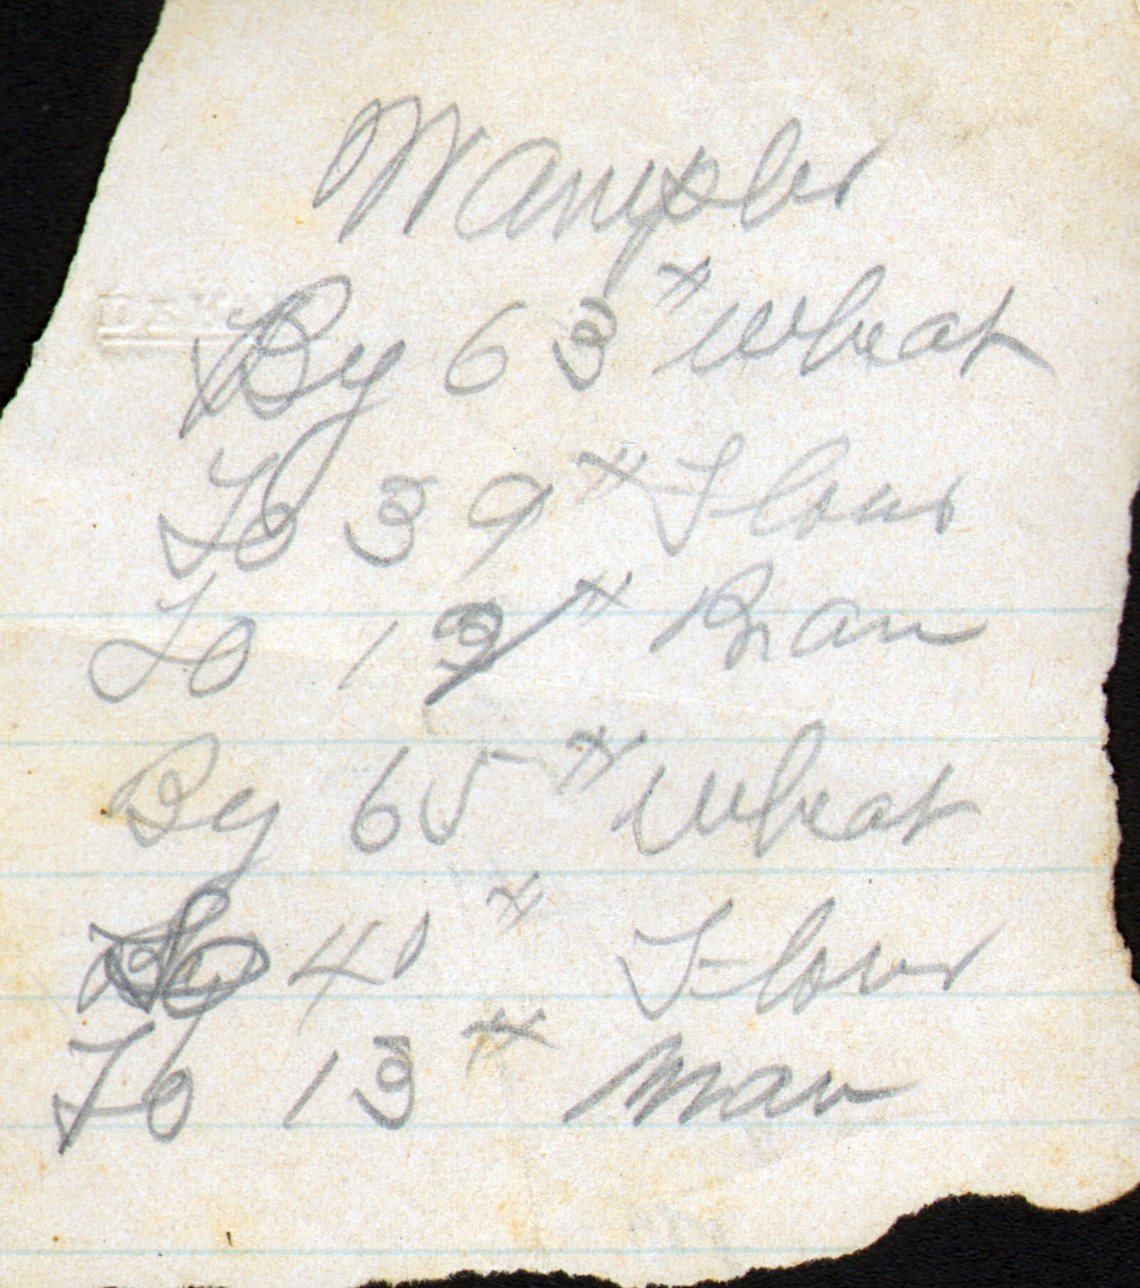 Wampler
By 63 # Wheat
To 39 # Flour
To 13 # Bran
By 65 # Wheat
To 40 # Flour
To 13 #